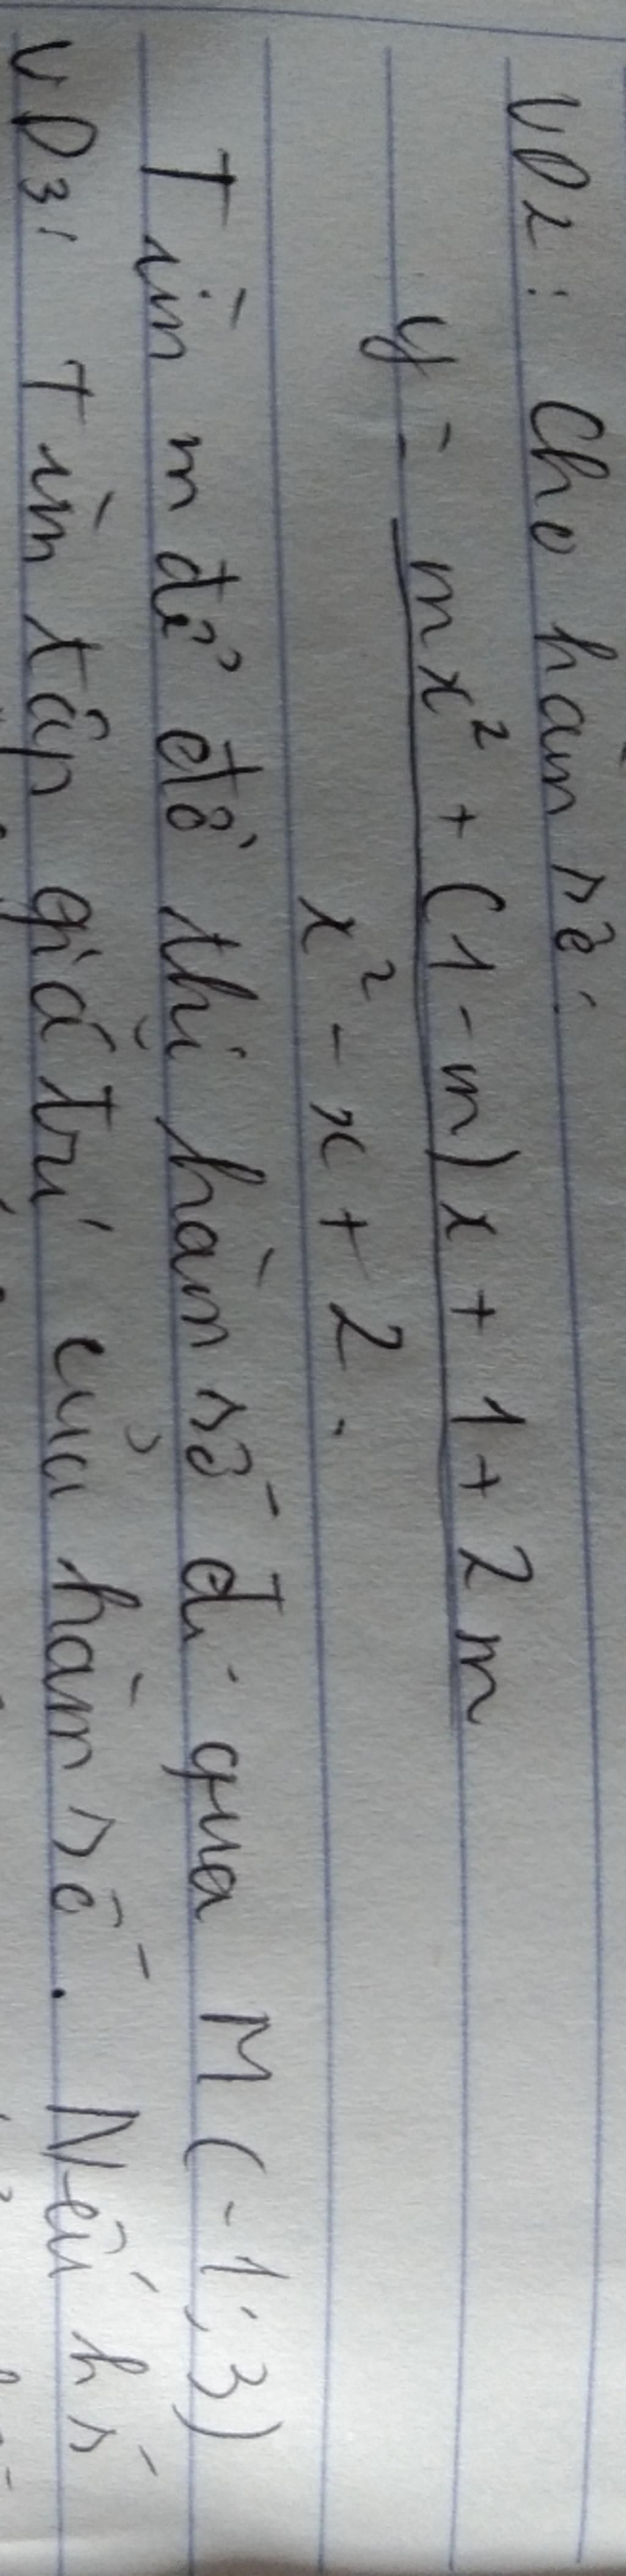 VD2: Cho hàm số:
y = mx² + (1-m)x + 1 + 2m
x² - x + 2.
Tìm m để đồ thị hàm số đi qua M (-1; 3)
VD3: Tìm tập giá trị của hàm số. Nếu hs